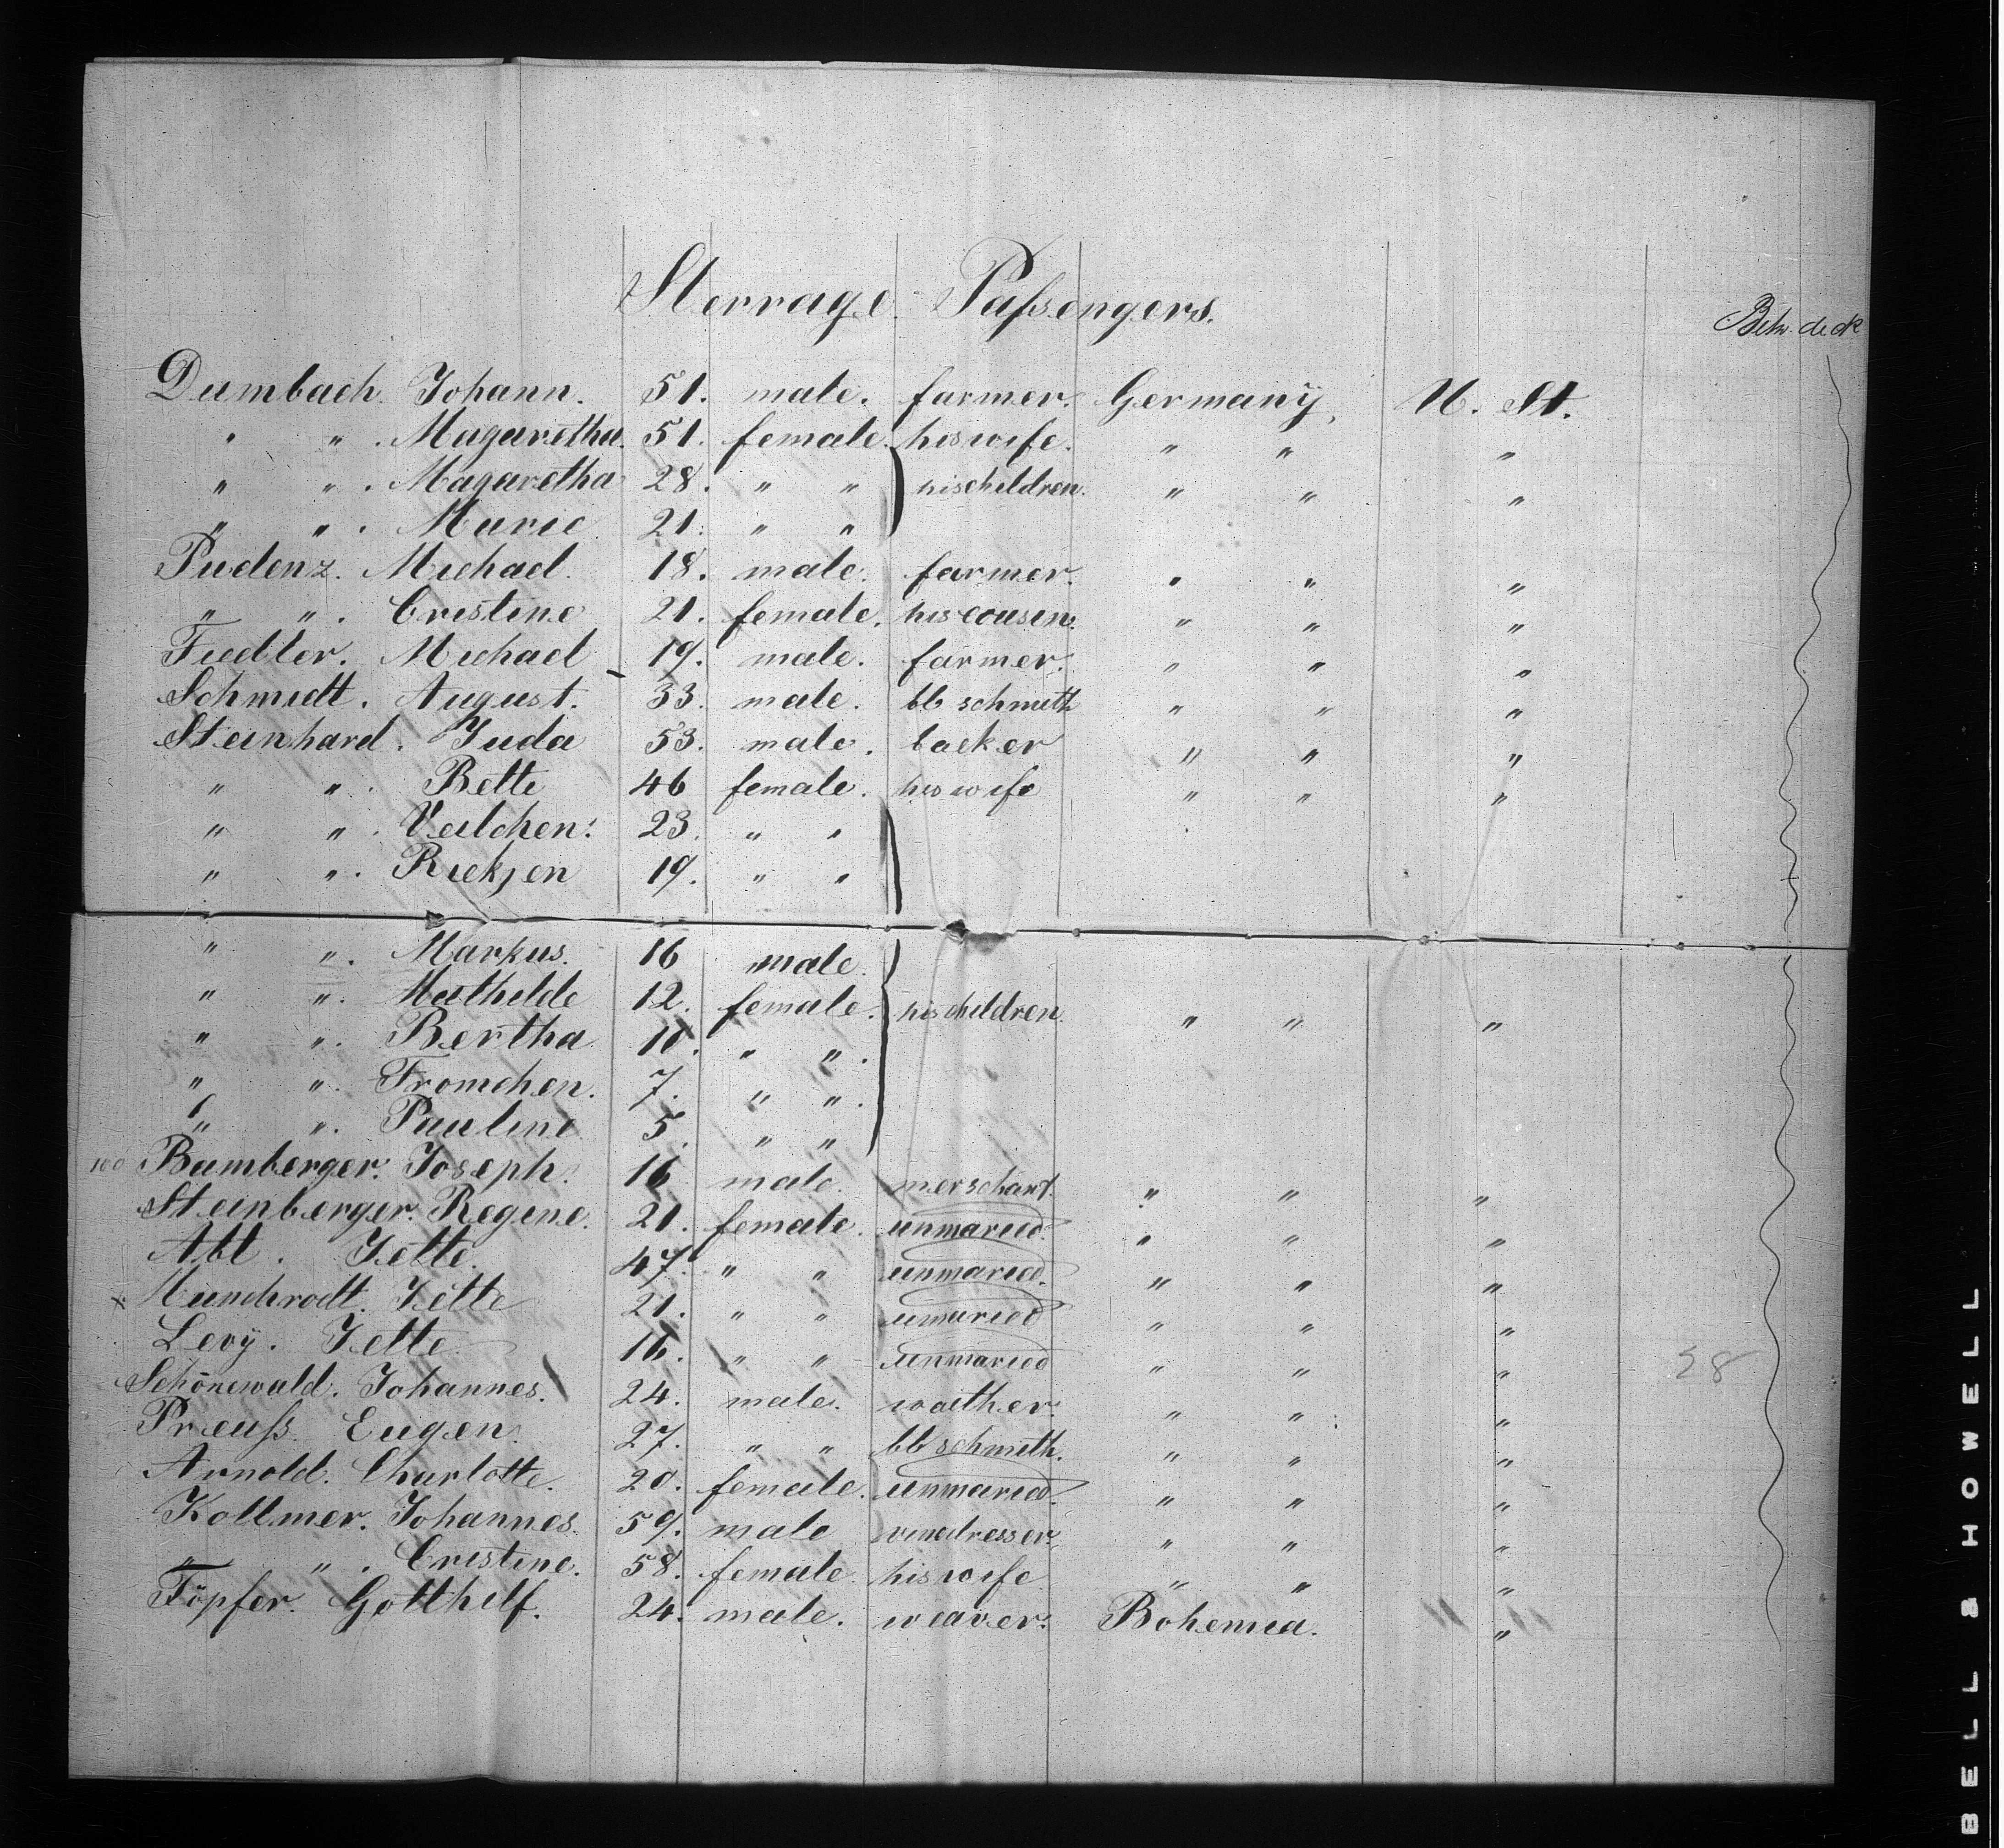 Sterrage Passengers.
Betw. deck
Dumbach. Johann. 51. male. farmer. Germany, U. St.
" " . Magaretha. 51. female. his wife. " " "
" " . Magaretha 28. " " his children. " " "
" " . Marie 21. " "
Pudenz. Michael. 18. male. farmer. " " "
" " . Cristine 21. female. his cousin. " " "
Fiedler. Michael 19. male. farmer. " " "
Schmidt. August. 33. male. bb schmith " " "
Steinhard. Juda 53. male. backer " " "
" " . Bette 46 female. his wife " " "
" " . Veilchen. 23. " "
" " . Riekjen 19. " "
" " . Markus. 16 male.
" " . Mathilde 12. female. his children. " " "
" " . Bertha 10. " " .
" " . Fromchen. 7. " " .
" " . Pauline 5. " "
100 Bamberger. Joseph. 16 male. merschant. " " "
Steinberger. Regine. 21. female. unmaried. " " "
Abt. Jette. 47. " " unmaried. " " "
x Mundrodt. Jette 21. " " umaried " " "
Levÿ. Jette 16. " " unmaried " " "
28
Schönewald. Johannes. 24. male. waither. " " "
Preuss. Eugen. 27. " " bb schmith. " " "
Arnold. Charlotte. 20. female. unmaried. " " "
Kollmer. Johannes. 59. male vinedresser. " " "
" " . Cristine. 58. female his wife " " "
Töpfer. Gotthilf. 24. male. weaver. Bohemia. "
BELL & HOWELL